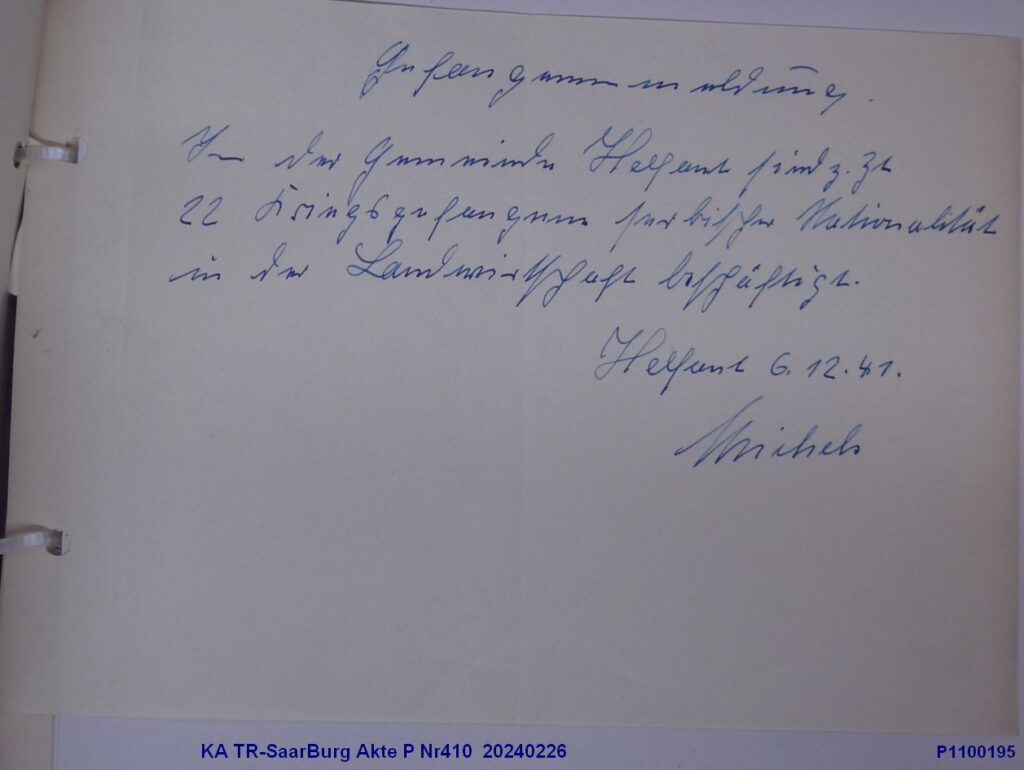 Gefangenenmeldung.
In der Gemeinde Helfant sind z. Zt
22 Kriegsgefangene serbischer Nationalität
in der Landwirtschaft beschäftigt.
Helfant 6.12.41.
Michels
KA TR-SaarBurg Akte P Nr410 20240226
P1100195